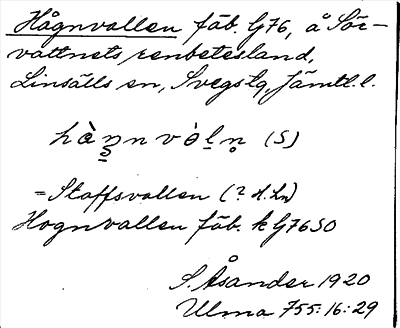 Hågnvallen fäb. G76, å Sör-
vattnets renbetesland,
Linsälls sn, Svegs tg, Jämtl. l.
(S)
= Staffsvallen (? d. Ln)
Hognvallen fäb. k G76 SO
S. Åsander 1920
Ulma 755:16:29